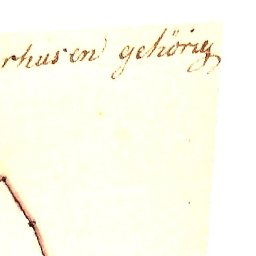 rhusen gehörig